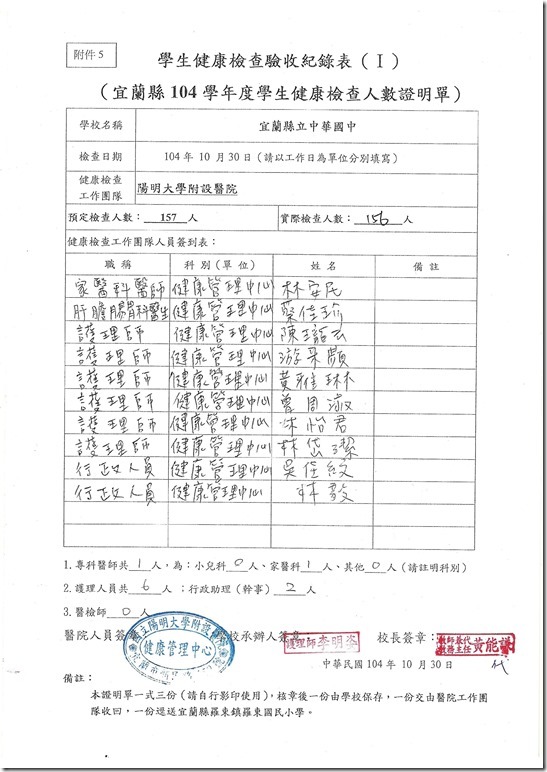 附件 5
學生健康檢查驗收紀錄表（Ⅰ）
（宜蘭縣 104 學年度學生健康檢查人數證明單）
學校名稱 宜蘭縣立中華國中
檢查日期 104 年 10 月 30 日（請以工作日為單位分別填寫）
健康檢查工作團隊 陽明大學附設醫院
預定檢查人數： 157 人 實際檢查人數： 156 人
健康檢查工作團隊人員簽到表：
職稱 科別（單位） 姓名 備註
家醫科醫師 健康管理中心 林安民
肝膽腸胃科醫生 健康管理中心 蔡佳瑜
護理師 健康管理中心 陳
護理師 健康管理中心 游采顯
護理師 健康管理中心 黃雅琳
護理師 健康管理中心 曾周淑
護理師 健康管理中心 林怡君
護理師 健康管理中心 林岱潔
行政人員 健康管理中心 吳佳紋
行政人員 健康管理中心 林毅
1.專科醫師共 1 人，為：小兒科 0 人、家醫科 1 人、其他 0 人（請註明科別）
2.護理人員共 6 人；行政助理（幹事） 2 人
3.醫檢師 0 人
醫院人員簽 校承辦人簽章 護理師李明 校長簽章： 教師兼代教務主任 黃能
立陽明大學附設醫
健康管理中心
中華民國 104 年 10 月 30 日
備註：
本證明單一式三份（請自行影印使用），核章後一份由學校保存，一份交由醫院工作團
隊收回，一份逕送宜蘭縣羅東鎮羅東國民小學。